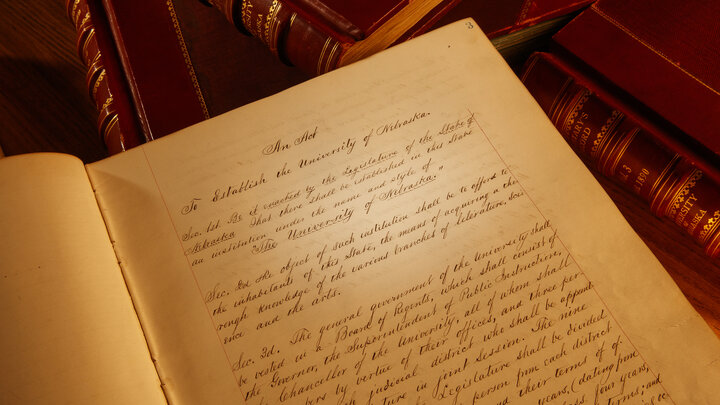 3
An Act
To Establish the University of Nebraska.
Sec. 1st. Be it enacted by the Legislature of the State of
Nebraska That there shall be established in this State
an institution under the name and style of
"The University of Nebraska."
Sec. 2d The object of such institution shall be to afford to
the inhabitants of this State, the means of acquiring a tho-
rough knowledge of the various branches of literature, sci-
ence and the arts.
Sec. 3d. The general government of the University shall
be vested in a Board of Regents, which shall consist of
the Governor, the Superintendent of Public Instruction,
Chancellor of the University, all of whom shall
bers by virtue of their offices, and three per-
judicial district who shall be appoint
ture in joint session. The nine
Legislature shall be divided
person from each district
and their terms of of
years, (dating from
four years,
terms; and
1890
UNIVERSITY
NEBRASKA